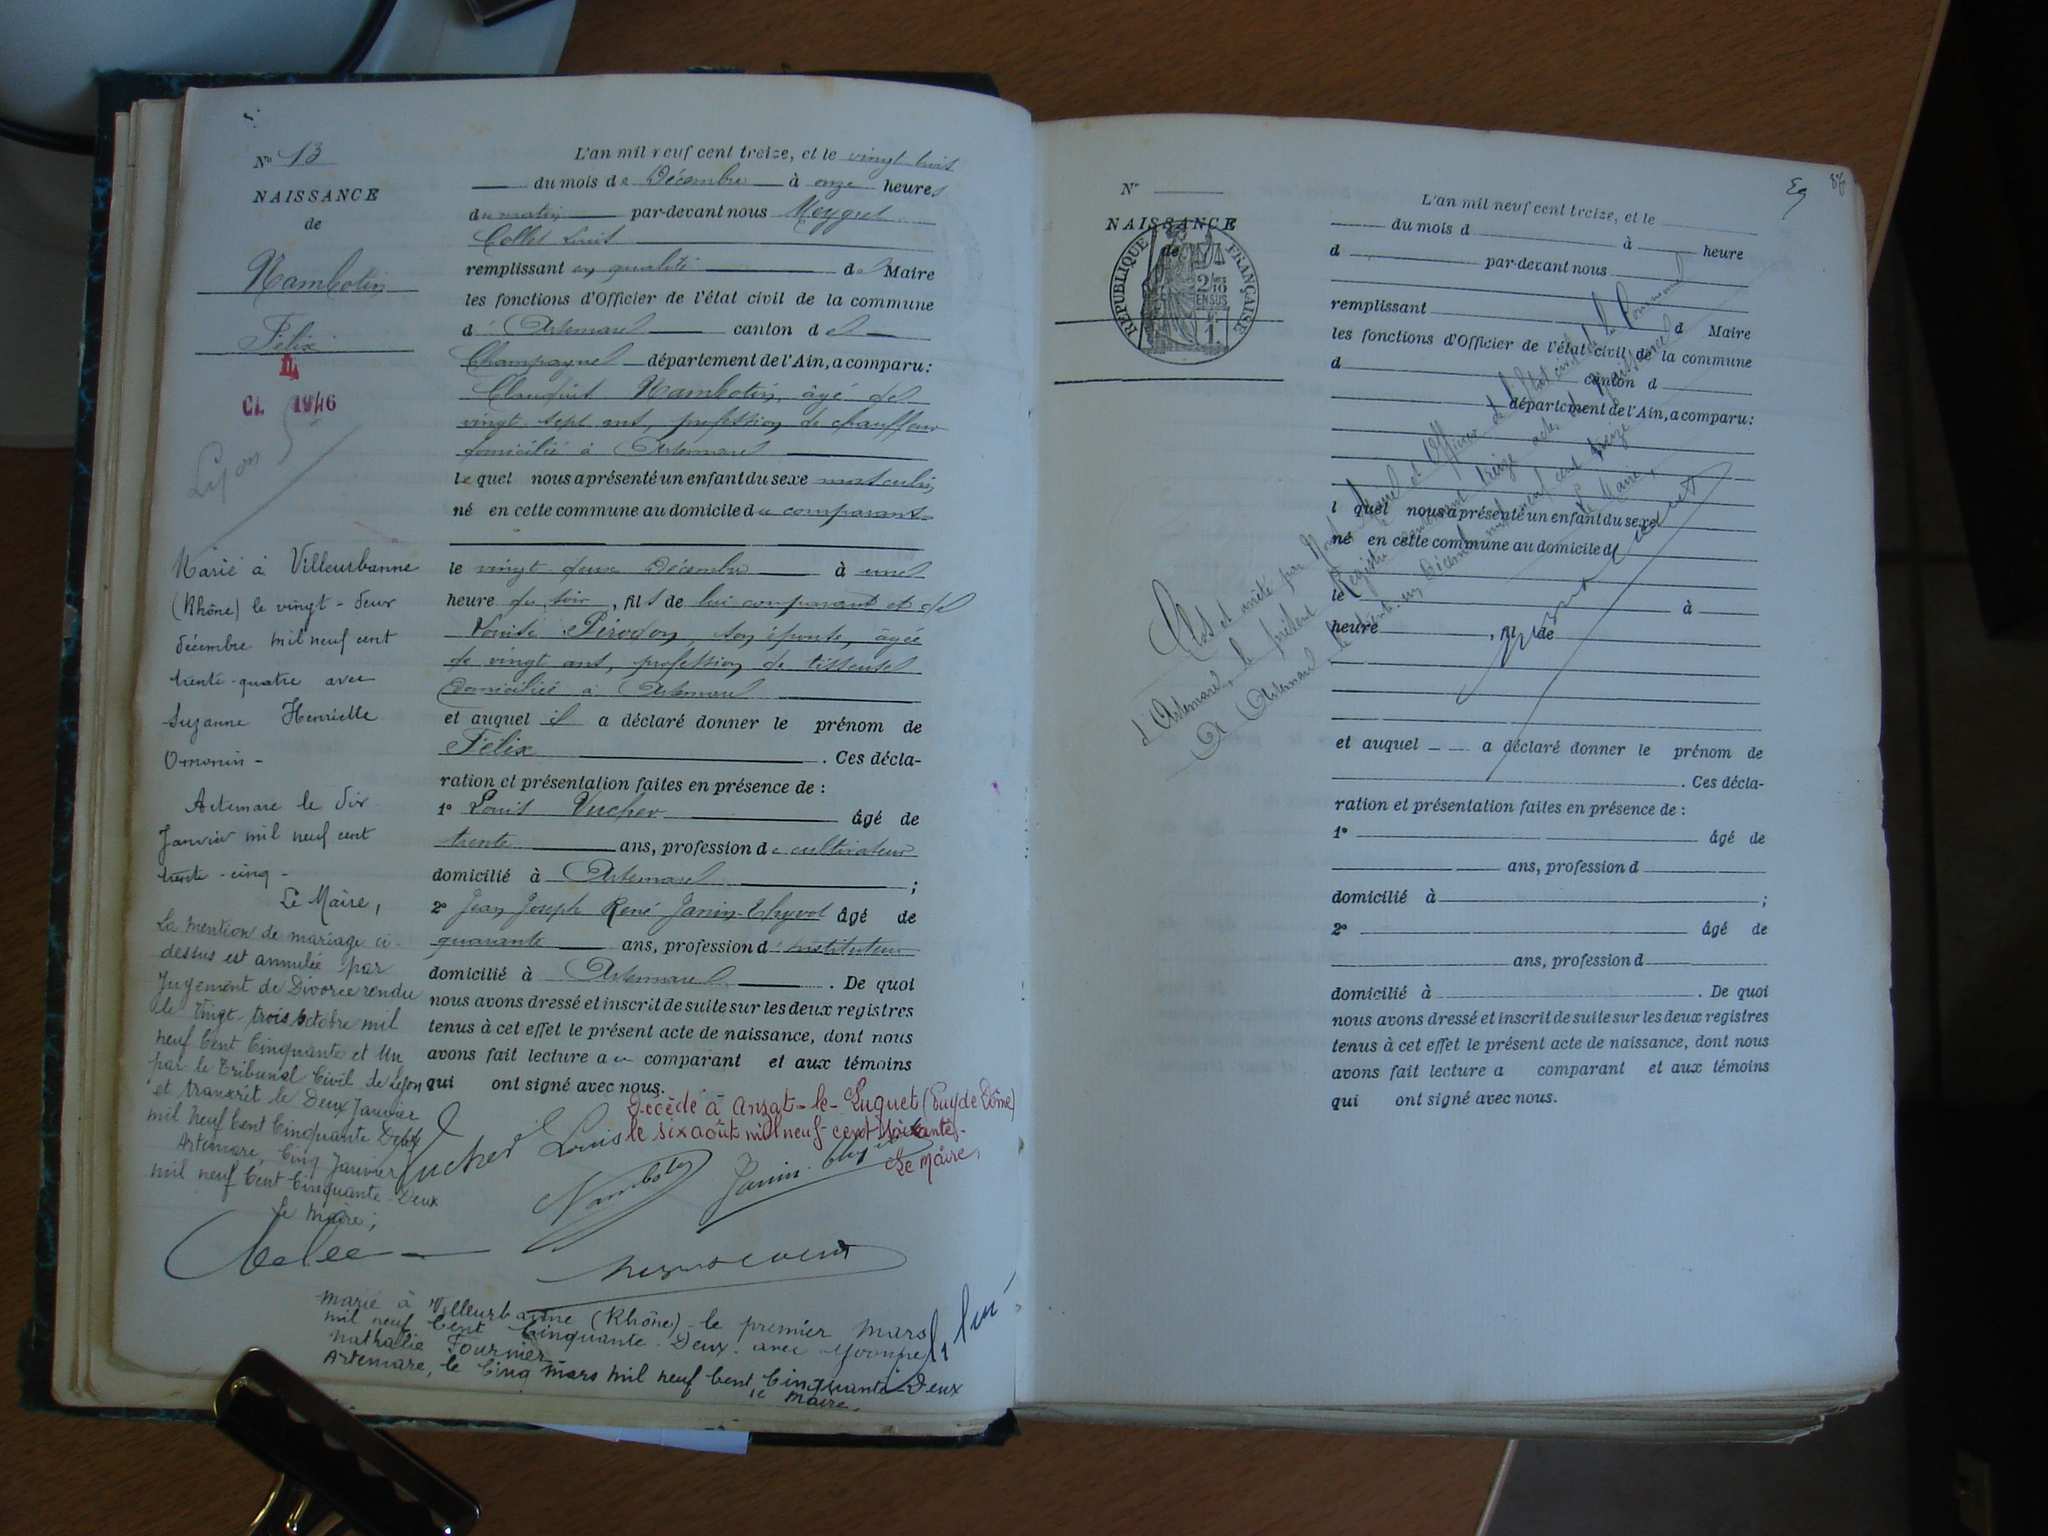 No 13
NAISSANCE
de
Nambotin
Félix
CL 1946
Lyon
L'an mil neuf cent treize, et le vingt trois
du mois de Décembre à onze heures
du matin par-devant nous Meygret
Collet Louis
remplissant en qualité de Maire
les fonctions d'Officier de l'état civil de la commune
d' Artemare canton de
Champagne département de l'Ain, a comparu:
Claudius Nambotin, âgé de
vingt-sept ans, profession de chauffeur
domicilié à Artemare
lequel nous a présenté un enfant du sexe masculin
né en cette commune au domicile du comparant
le vingt deux Décembre à une
heure du soir, fils de lui comparant et de
Pérodon, son épouse, âgée
de vingt ans, profession de tisseuse
domiciliée à Artemare
et auquel il a déclaré donner le prénom de
Félix . Ces décla-
ration et présentation faites en présence de :
1o Louis Vucher âgé de
trente ans, profession de cultivateur
domicilié à Artemare ;
2o Jean Joseph René Janin-Thyvot âgé de
quarante ans, profession d'instituteur
domicilié à Artemare . De quoi
nous avons dressé et inscrit de suite sur les deux registres
tenus à cet effet le présent acte de naissance, dont nous
avons fait lecture au comparant et aux témoins
qui ont signé avec nous.
Vucher Louis
Nambotin
Janin-Thyvot
Marié à Villeurbanne
(Rhône) le vingt-deux
décembre mil neuf cent
trente-quatre avec
Suzanne Henriette
Omonin -
Artemare le dix
Janvier mil neuf cent
trente-cinq -
Le Maire,
La mention de mariage ci-
dessus est annulée par
Jugement de Divorce rendu
le Vingt-trois Octobre mil
neuf Cent Cinquante et Un
par le Tribunal Civil de Lyon
et transcrit le Deux Janvier
mil neuf Cent Cinquante Deux
Artemare, Cinq Janvier
mil neuf Cent Cinquante-Deux
Le Maire;
Décédé à Anzat-le-Luguet (Puy de Dôme)
le six août mil neuf-cent soixante-
Le Maire,
Marié à Villeurbanne (Rhône) le premier Mars
mil neuf Cent Cinquante-Deux avec Yvonne
Nathalie Fournier
Artemare, le Cinq Mars mil neuf Cent Cinquante-Deux
le Maire.
No
NAISSANCE
de
RÉPUBLIQUE FRANÇAISE
2/10
EN SUS
L'an mil neuf cent treize, et le
du mois d à heure
d par-devant nous
remplissant d Maire
les fonctions d'Officier de l'état civil de la commune
d canton d
département de l'Ain, a comparu:
l quel nous a présenté un enfant du sexe
né en cette commune au domicile d
le à
heure , fil de
et auquel a déclaré donner le prénom de
. Ces décla-
ration et présentation faites en présence de :
1o âgé de
ans, profession d
domicilié à ;
2o âgé de
ans, profession d
domicilié à . De quoi
nous avons dressé et inscrit de suite sur les deux registres
tenus à cet effet le présent acte de naissance, dont nous
avons fait lecture a comparant et aux témoins
qui ont signé avec nous.
Clos et arrêté par Nous, Maire et Officier de l'Etat civil de la Commune
d'Artemare, le présent Registre contenant treize actes de Naissance
A Artemare, le trente-un Décembre mil neuf cent treize
Le Maire,